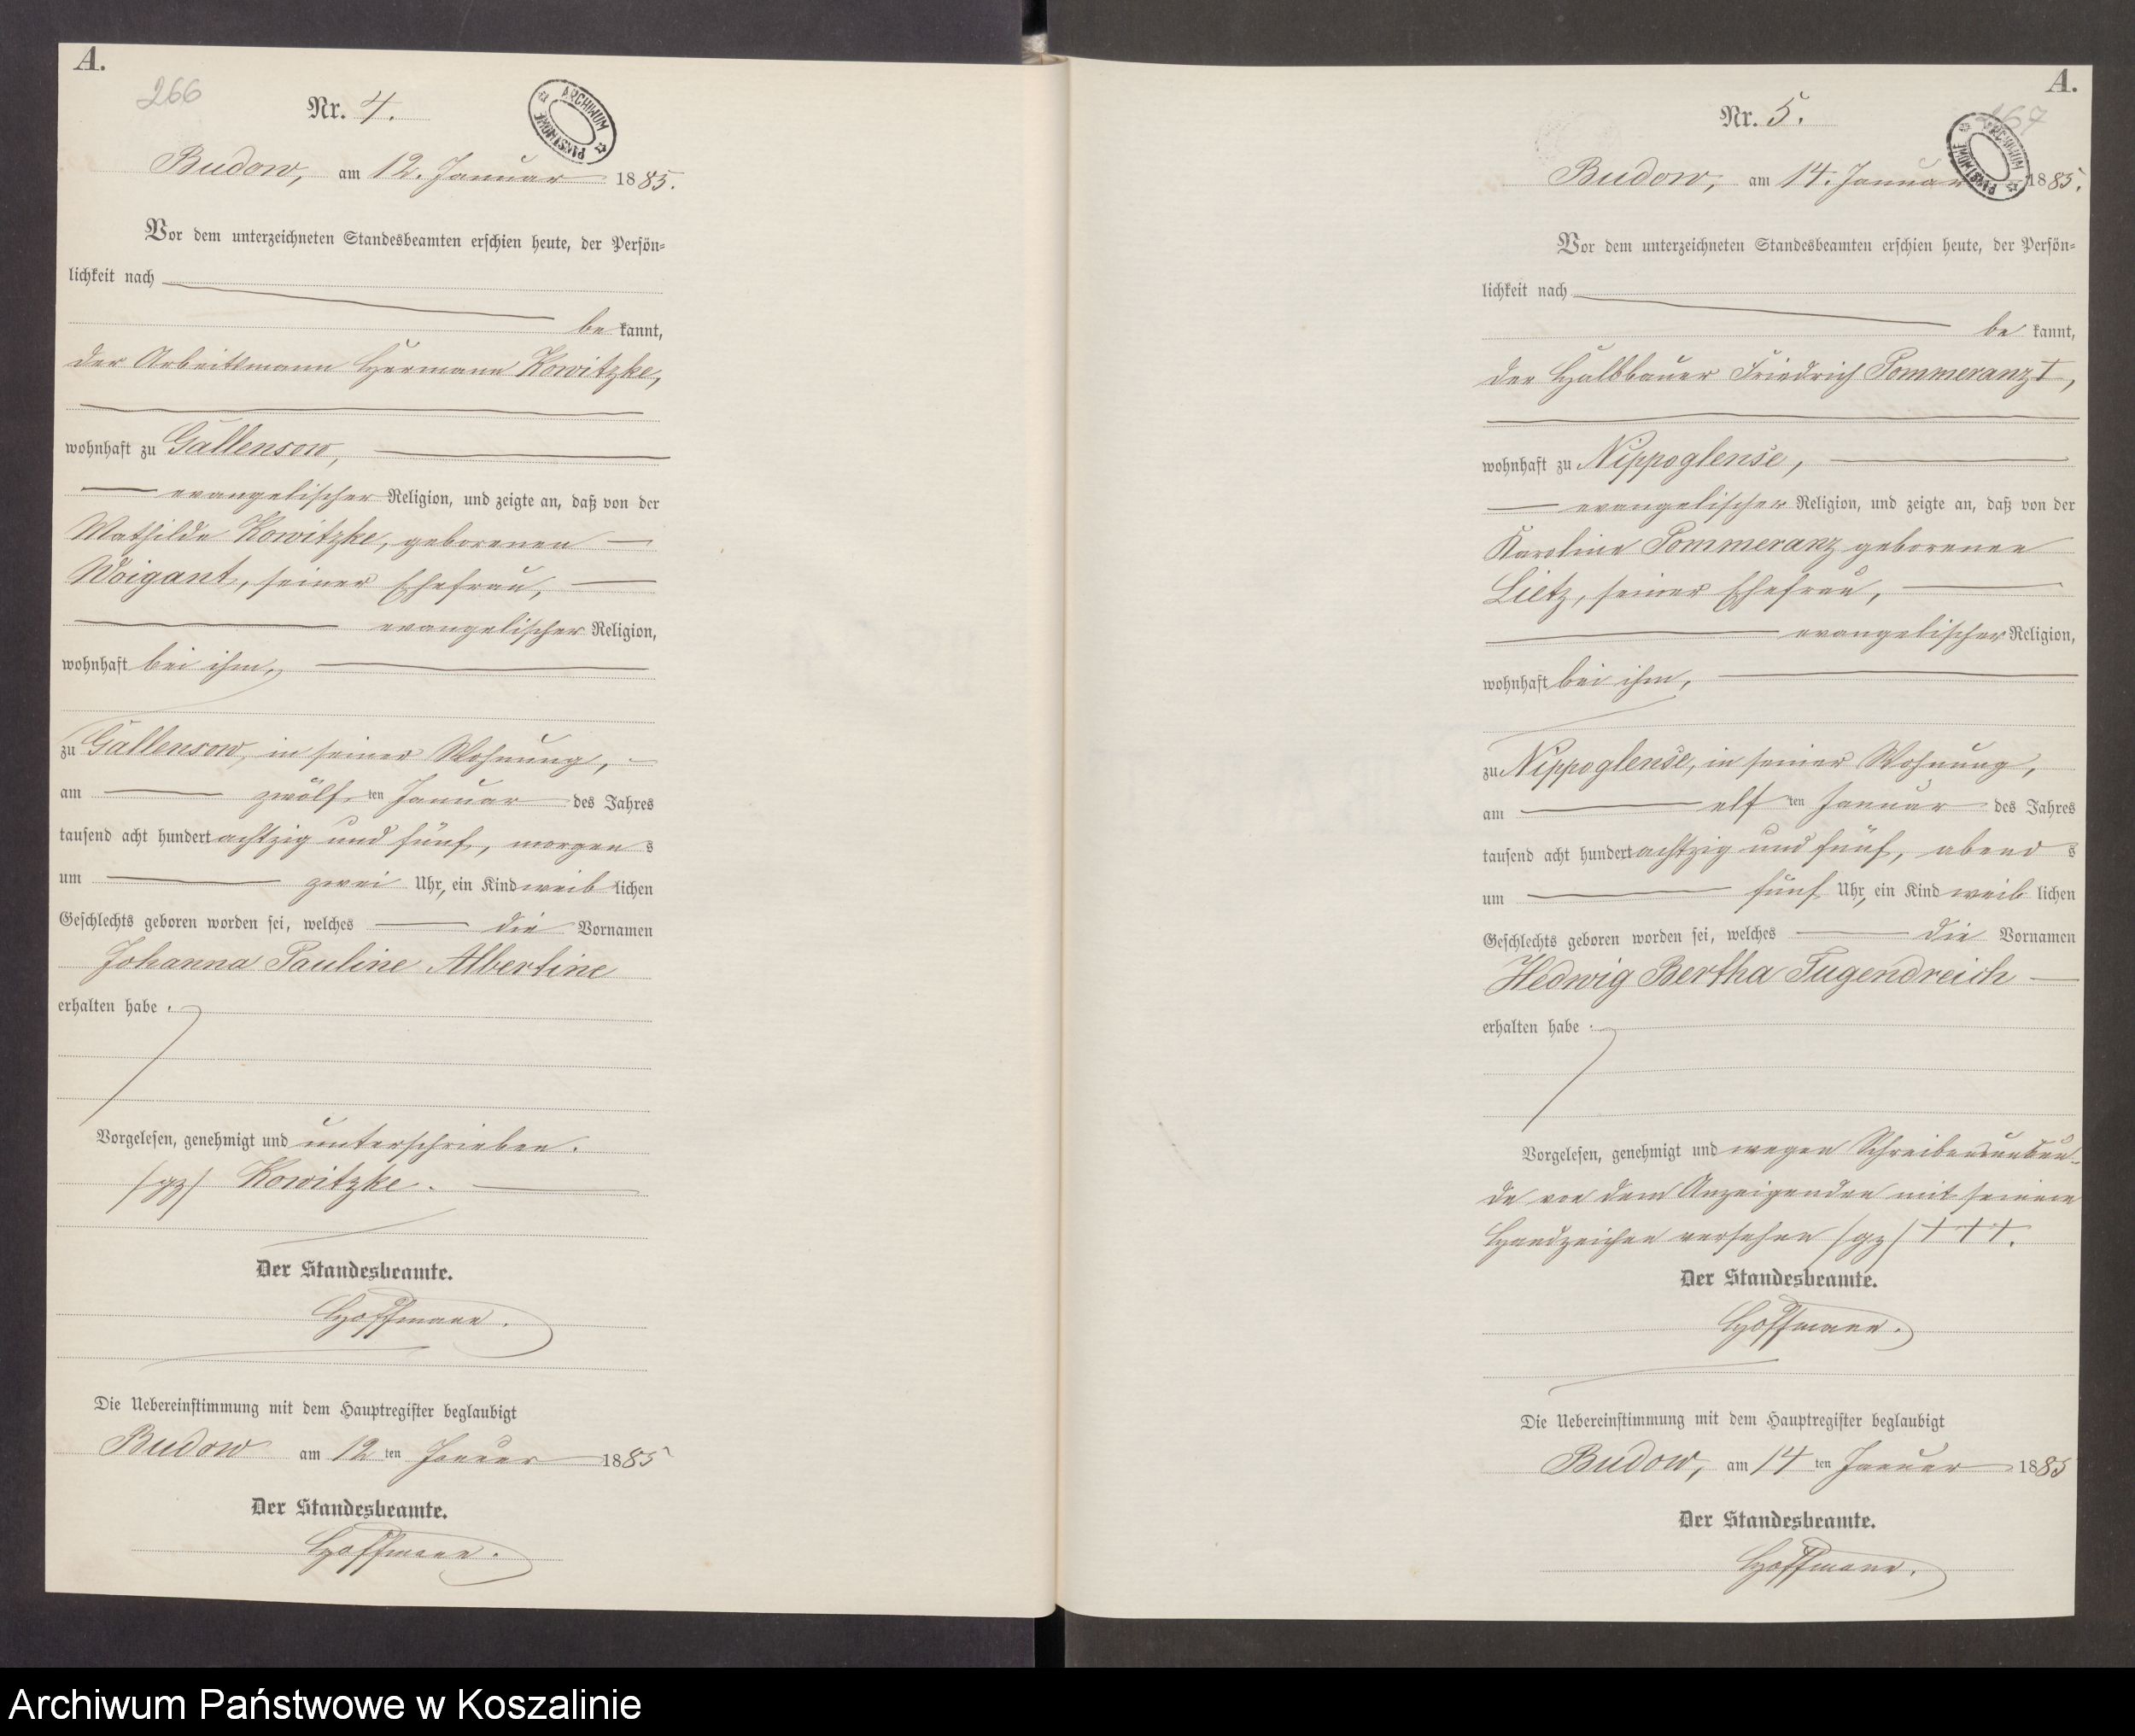 A.
266
Nr. 4.
ARCHIWUM PAŃSTWOWE
Budow, am 12. Januar 1885.
Vor dem unterzeichneten Standesbeamten erschien heute, der Persön-
lichkeit nach
be kannt,
der Arbeitsmann Hermann Kowitzke,
wohnhaft zu Gallensow,
evangelischer Religion, und zeigte an, daß von der
Mathilde Kowitzke, geborenen
Woigant, seiner Ehefrau,
evangelischer Religion,
wohnhaft bei ihm,
zu Gallensow, in seiner Wohnung,
am zwölf ten Januar des Jahres
tausend acht hundert achtzig und fünf, morgen s
um zwei Uhr, ein Kind weib lichen
Geschlechts geboren worden sei, welches die Vornamen
Johanna Pauline Albertine
erhalten habe.
Vorgelesen, genehmigt und unterschrieben.
/gz/ Kowitzke.
Der Standesbeamte.
Hoffmann.
Die Uebereinstimmung mit dem Hauptregister beglaubigt
Budow am 12 ten Januar 1885
Der Standesbeamte.
Hoffmann.
A.
267
Nr. 5.
ARCHIWUM PAŃSTWOWE
Budow, am 14. Januar 1885.
Vor dem unterzeichneten Standesbeamten erschien heute, der Persön-
lichkeit nach
be kannt,
der Halbbauer Friedrich Pommeranz I,
wohnhaft zu Nippoglense,
evangelischer Religion, und zeigte an, daß von der
Karoline Pommeranz geborenen
Lietz, seiner Ehefrau,
evangelischer Religion,
wohnhaft bei ihm,
zu Nippoglense, in seiner Wohnung,
am elf ten Januar des Jahres
tausend acht hundert achtzig und fünf, abend s
um fünf Uhr, ein Kind weib lichen
Geschlechts geboren worden sei, welches die Vornamen
Hedwig Bertha Tugendreich
erhalten habe.
Vorgelesen, genehmigt und wegen Schreibensunkun-
de von dem Anzeigenden mit seinem
Handzeichen versehen /gz/ +++.
Der Standesbeamte.
Hoffmann.
Die Uebereinstimmung mit dem Hauptregister beglaubigt
Budow, am 14 ten Januar 1885
Der Standesbeamte.
Hoffmann.
Archiwum Państwowe w Koszalinie